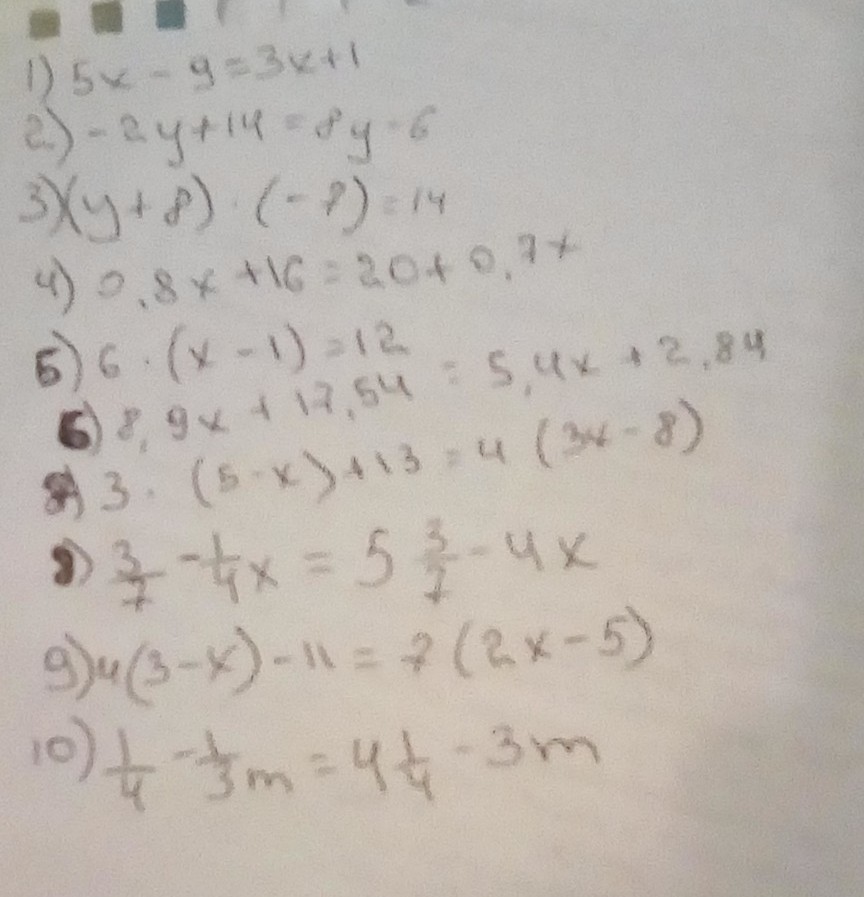 1) 5x - 9 = 3x + 1
2) - 2y + 14 = 8y - 6
3) (y + 8) · (- 7) = 14
4) 0,8x + 16 = 20 + 0,7x
5) 6 · (x - 1) = 12
6) 8,9x + 17,54 = 5,4x + 2,84
3 · (5 - x) + 13 = 4 (3x - 8)
8) 3/7 - 1/4x = 5 3/7 - 4x
9) 4(3 - x) - 11 = 7 (2x - 5)
10) 1/4 - 1/3m = 4 1/4 - 3m